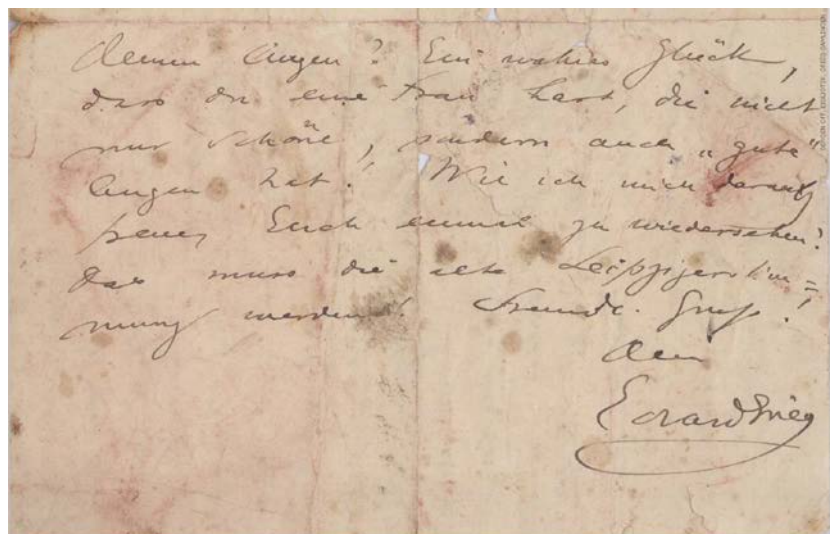 Deinen Augen? Ein wahres Glück,
dass du eine Frau hast, die nicht
nur schöne, sondern auch „gute“
Augen hat! Wie ich mich darauf
freue, Euch einmal zu wiedersehen!
Das muss die alte Leipzigerstim=
mung werden! Freundl. Gruß!
Dein
Edvard Grieg